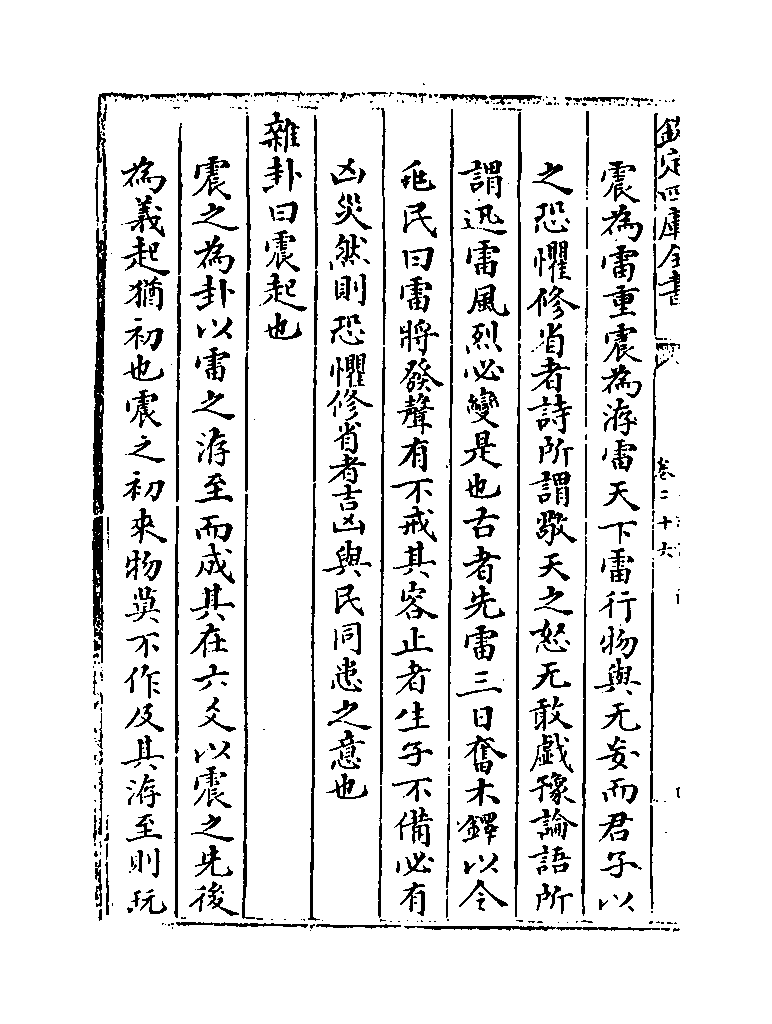 欽定四庫全書
卷二十六
震為雷重震為洊雷天下雷行物與无妄而君子以
之恐懼修省者詩所謂敬天之怒无敢戲豫論語所
謂迅雷風烈必變是也古者先雷三日奮木鐸以令
兆民曰雷將發聲有不戒其容止者生子不備必有
凶災然則恐懼修省者吉凶與民同患之意也
雜卦曰震起也
震之為卦以雷之洊至而成其在六爻以震之先後
為義起猶初也震之初來物莫不作及其洊至則玩